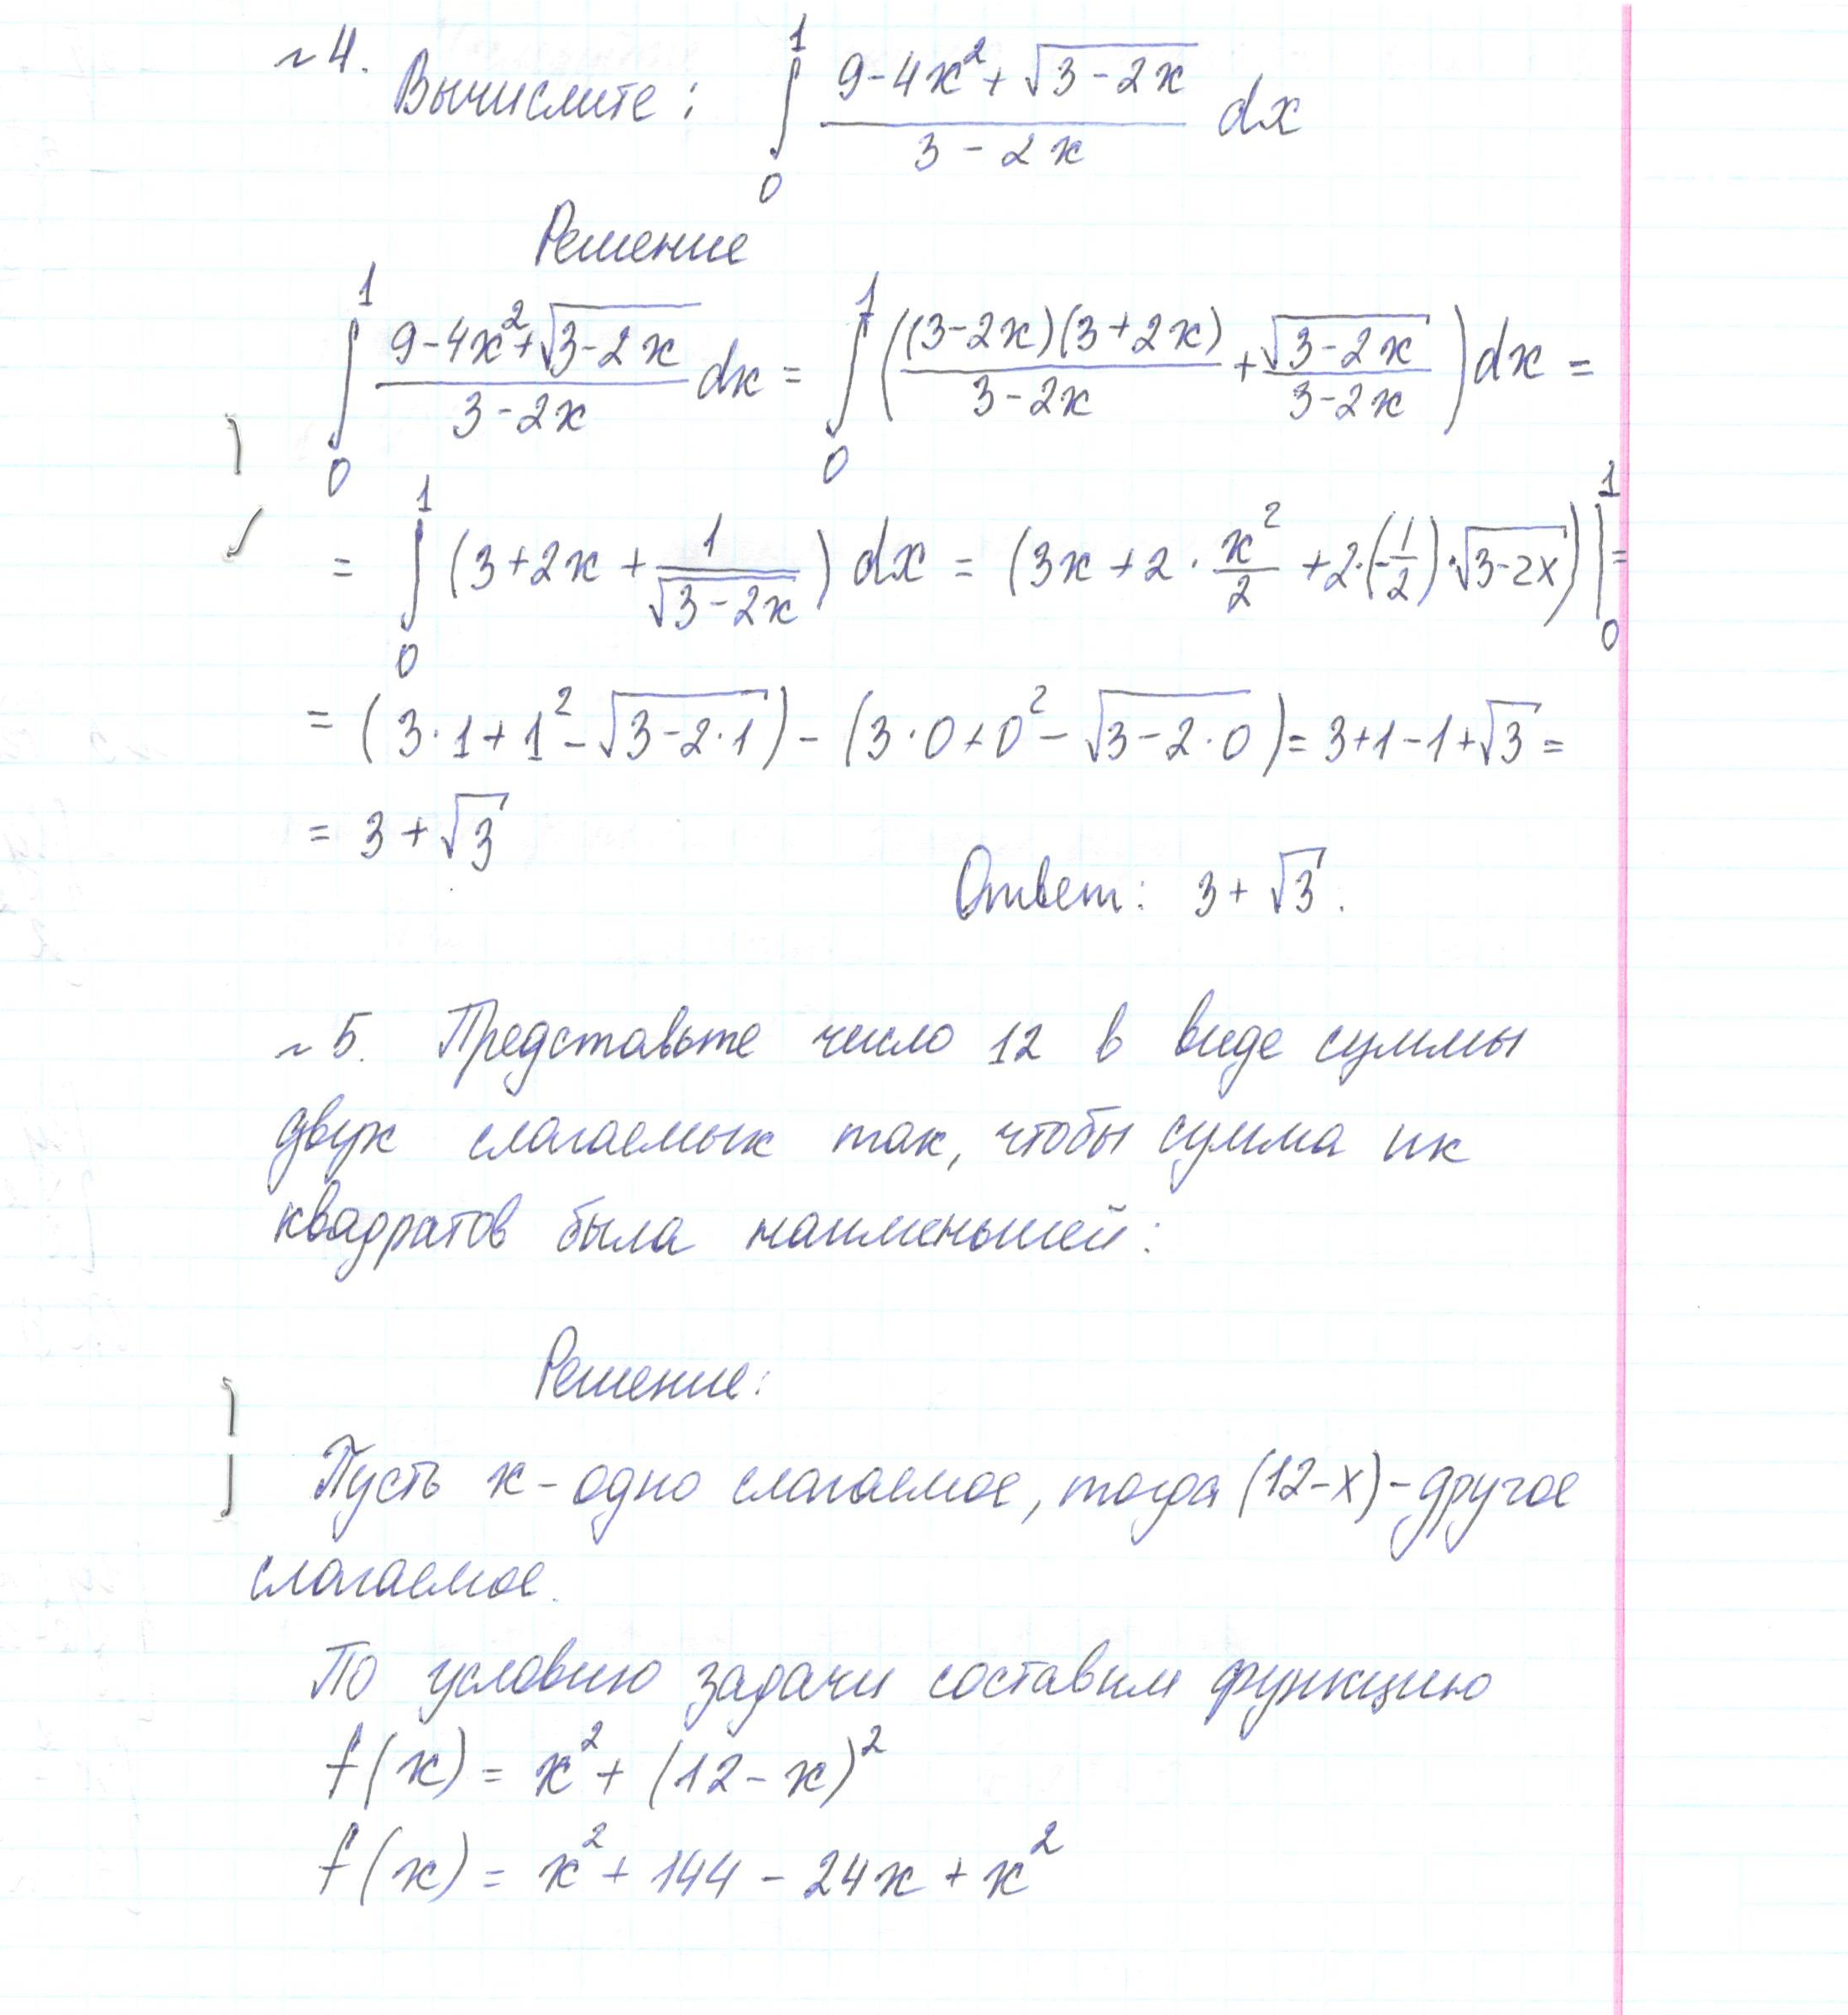 №4. Вычислите: ∫₀¹ (9-4x²+√(3-2x))/(3-2x) dx
Решение
∫₀¹ (9-4x²+√(3-2x))/(3-2x) dx = ∫₀¹ ((3-2x)(3+2x)/(3-2x) + √(3-2x)/(3-2x)) dx =
= ∫₀¹ (3+2x+1/√(3-2x)) dx = (3x+2·x²/2+2·(-1/2)·√(3-2x))|₀¹ =
= (3·1+1²-√(3-2·1)) - (3·0+0²-√(3-2·0)) = 3+1-1+√3 =
= 3+√3
Ответ: 3+√3.
№5. Представьте число 12 в виде суммы
двух слагаемых так, чтобы сумма их
квадратов была наименьшей:
Решение:
Пусть x - одно слагаемое, тогда (12-x) - другое
слагаемое.
По условию задачи составим функцию
f(x) = x² + (12-x)²
f(x) = x² + 144 - 24x + x²